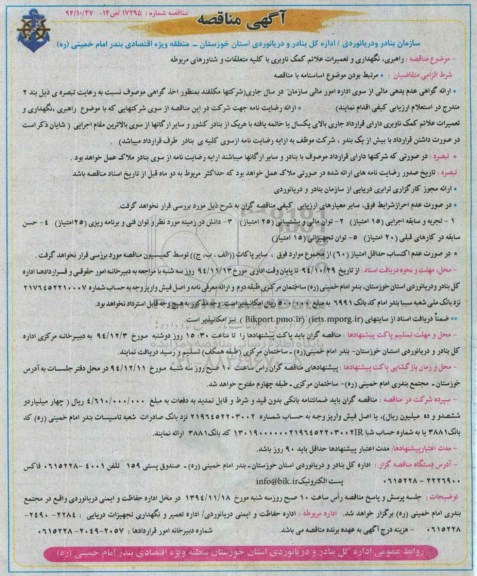 مناقصه شماره : ۱۷۲۹۵/ص۱۴ - ۹۴/۱۰/۲۷
آگهی مناقصه
سازمان بنادر ودریانوردی / اداره کل بنادر و دریانوردی استان خوزستان - منطقه ویژه اقتصادی بندر امام خمینی (ره)
- موضوع مناقصه : راهبری، نگهداری و تعمیرات علائم کمک ناوبری با کلیه متعلقات و شناورهای مربوطه
شرط الزامی متقاضیان : • مرتبط بودن موضوع اساسنامه با مناقصه
• ارائه گواهی عدم بدهی مالی از سوی اداره امور مالی سازمان در سال جاری(شرکتها مکلفند بمنظور اخذ گواهی موصوف نسبت به رعایت تبصره ی ذیل بند ۲
مندرج در استعلام ارزیابی کیفی اقدام نمایند) • ارائه رضایت نامه جهت شرکت در این مناقصه از سوی شرکتهایی که با موضوع راهبری ،نگهداری و
تعمیرات علائم کمک ناوبری دارای قرارداد جاری بالای یکسال یا خاتمه یافته با هریک از بنادر کشور و سایر ارگانها از سوی بالاترین مقام اجرایی ( شایان ذکر است
در صورت داشتن قرارداد با بیش از یک بندر ، شرکت موظف به ارایه رضایت نامه ازسوی کلیه ی بنادر طرف قرارداد میباشد) .
• تبصره : در صورتی که شرکتها دارای قرارداد موصوف با بنادر و سایر ارگانها میباشند ارایه رضایت نامه از سوی بنادر ملاک عمل خواهد بود .
تبصره : تاریخ صدور رضایت نامه های ارائه شده در صورتی ملاک عمل خواهد بود که حداکثر مربوط به دو ماه قبل از تاریخ اسناد مناقصه باشد
• ارائه مجوز کارگزاری ترابری دریایی از سازمان بنادر و دریانوردی
• در صورت عدم احراز شرایط فوق، سایر معیارهای ارزیابی کیفی مناقصه گران به شرح ذیل مورد بررسی قرار نخواهد گرفت.
۱ - تجربه و سابقه اجرایی (۱۵ امتیاز) ۲- توان مالی و پشتیبانی (۲۵ امتیاز) ۳- دانش در زمینه مورد نظر و توان فنی و برنامه ریزی (۲۵امتیاز) ۴- حسن
سابقه در کارهای قبلی (۲۰ امتیاز) ۵- توان تجهیزاتی (۱۵ امتیاز)
• در صورت عدم اکتساب حداقل امتیاز (۶۰) از مجموع موارد فوق ، سایر پاکات ((الف ، ب، ج)) توسط کمیسیون مناقصه مورد بررسی قرار نخواهد گرفت .
- محل، مهلت و نحوه دریافت اسناد : از تاریخ ۹۴/۱۰/۲۹ تا پایان وقت اداری مورخ ۹۴/۱۱/۱۳ روز سه شنبه با مراجعه به دبیرخانه امور حقوقی و قراردادها اداره
کل بنادر ودریانوردی استان خوزستان، بندر امام خمینی(ره) ساختمان مرکزی طبقه دوم و ارائه معرفی نامه و اصل فیش واریز وجه به حساب شماره ۲۱۷۹۴۵۲۲۱۰۰۰۷
نزد بانک ملی شعبه سیبا بندر امام کد بانک ۶۹۹۱ به مبلغ ۵۰۰/۰۰۰ ریال
•• ضمناً دریافت اسناد از سایتهای (iets.mporg.ir) ، (Bikport.pmo.ir) نیز امکانپذیر است.
- محل و مهلت تسلیم پاکت پیشنهادها : مناقصه گران باید پاکت پیشنهادها را تا ساعت ۱۵:۳۰ روز دوشنبه مورخ ۹۴/۱۲/۳ به دبیرخانه مرکزی اداره
کل بنادر و دریانوردی استان خوزستان- بندر امام خمینی(ره) - ساختمان مرکزی (طبقه همکف) تسلیم و رسید دریافت نمایند.
- محل و زمان بازگشایی پاکت پیشنهادها : پیشنهادهای مناقصه گران راس ساعت ۱۰ صبح روز سه شنبه مورخ در محل دفتر جلسات به آدرس
خوزستان - مجتمع بندری امام خمینی (ره)- ساختمان مرکزی - طبقه چهارم مفتوح خواهد شد.
- سپرده شرکت در مناقصه : مناقصه گران باید ضمانتنامه بانکی بدون قید و شرط و قابل تمدید به دفعات به مبلغ ۴/۶۱۰/۰۰۰/۰۰۰ ریال ( چهار میلیارد و
ششصد و ده میلیون ریال)، یا اصل فیش واریز وجه به حساب شماره ۲۱۹۶۴۵۲۲۰۳۰۰۲ نزد بانک صادرات شعبه تاسیسات بندر امام خمینی (ره) کد
بانک ۳۸۸۱ یا به شماره حساب شبا کد بانک ۳۸۸۱ ارائه نمایند.
- مدت اعتبار پیشنهادها: مدت اعتبار پیشنهادها حداقل باید ۹۰ روز باشد.
- آدرس دستگاه مناقصه گزار : اداره کل بنادر و دریانوردی استان خوزستان- بندر امام خمینی (ره) - صندوق پستی ۱۵۹ تلفن ۴۰۰۱ -۰۶۱۵۲۲۸ فاکس
۰۶۱۵۲۲۲۶۹۰۰ پست الکترونیک info@bik.ir
توضیحات : جلسه پرسش و پاسخ مناقصه راس ساعت ۱۰ صبح روز سه شنبه مورخ در محل اداره حفاظت و ایمنی دریانوردی واقع در مجتمع
بندری امام خمینی (ره) برگزار خواهد شد. اداره مربوطه : اداره حفاظت و ایمنی دریانوردی/ اداره تعمیر و نگهداری تجهیزات دریایی : ۲۲۸۴ - ۲۴۹۰ -
۰۶۱۵۲۲۸ - هزینه درج آگهی به عهده برنده مناقصه می باشد شماره دبیرخانه امور قراردادها : ۲۰۵۷-۲۰۴۹ - ۰۶۱۵۲۲۸
روابط عمومی اداره کل بنادر و دریانوردی استان خوزستان منطقه ویژه اقتصادی بندر امام خمینی (ره)